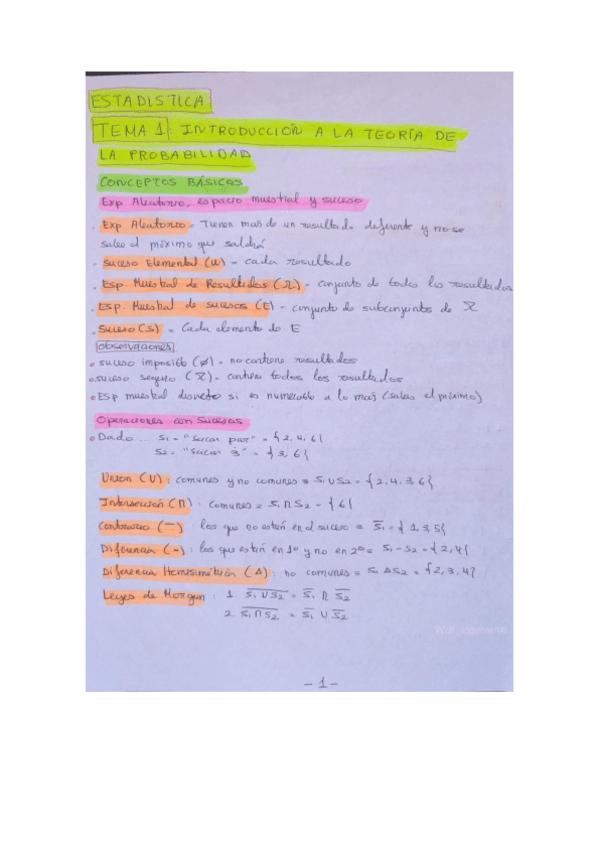 ESTADISTICA
TEMA 1 INTRODUCCIÓN A LA TEORÍA DE
LA PROBABILIDAD
CONCEPTOS BÁSICOS
Exp Aleatorio, espacio muestral y suceso
. Exp Aleatorio = Tienen mas de un resultado diferente y no se
sabe el próximo que saldrá
. Suceso Elemental (ω) = cada resultado
. Esp. Muestral de Resultados (Ω) = conjunto de todos los resultados
. Esp. Muestral de sucesos (E) = conjunto de subconjuntos de Ω
. Suceso (S) = Cada elemento de E
Observaciones
• suceso imposible (∅) = no contiene resultados
• suceso seguro (Ω) = contiene todos los resultados
• Esp muestral discreto si es numerable a lo mas (sabes el próximo)
Operaciones con Sucesos
• Dado ... S1 = "Sacar par" = {2, 4, 6}
S2 = "Sacar 3̇" = {3, 6}
Union (U): comunes y no comunes = S1 U S2 = {2, 4, 3, 6}
Intersección (∩): Comunes = S1 ∩ S2 = {6}
Contrario (—) los que no están en el suceso = S̅1 = {1, 3, 5}
Diferencia (-): los que están en 1º y no en 2º = S1 - S2 = {2, 4}
Diferencia (Δ): no comunes = S1 Δ S2 = {2, 3, 4}
Leyes de Morgan: 1. \overline{S1 U S2} = S̅1 ∩ S̅2
2. \overline{S1 ∩ S2} = S̅1 U S̅2
- 1 -